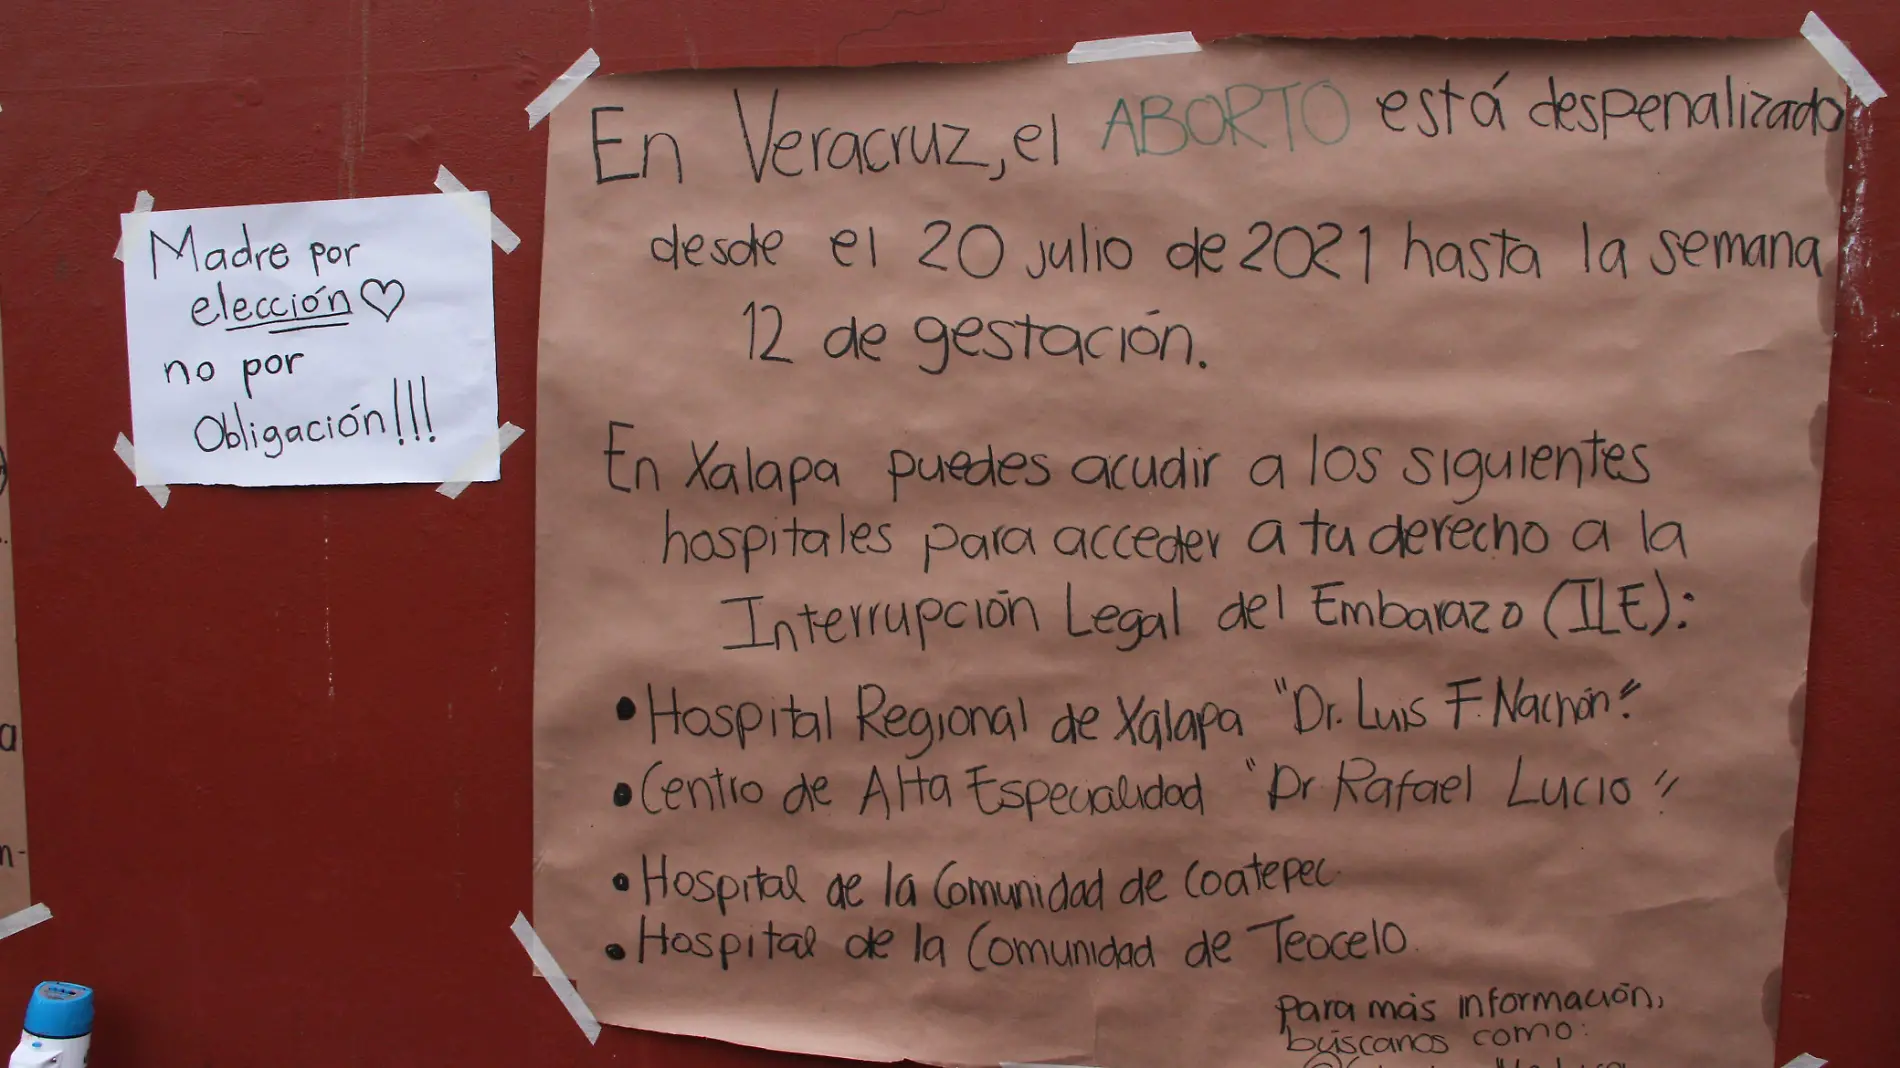 Madre por
elección
no por
Obligación!!!
En Veracruz, el ABORTO está despenalizado
desde el 20 julio de 2021 hasta la semana
12 de gestación.
En Xalapa puedes acudir a los siguientes
hospitales para acceder a tu derecho a la
Interrupción Legal del Embarazo (ILE):
• Hospital Regional de Xalapa "Dr. Luis F. Nachón".
• Centro de Alta Especialidad "Dr Rafael Lucio"
• Hospital de la Comunidad de Coatepec.
• Hospital de la Comunidad de Teocelo.
Para más información,
búscanos como: